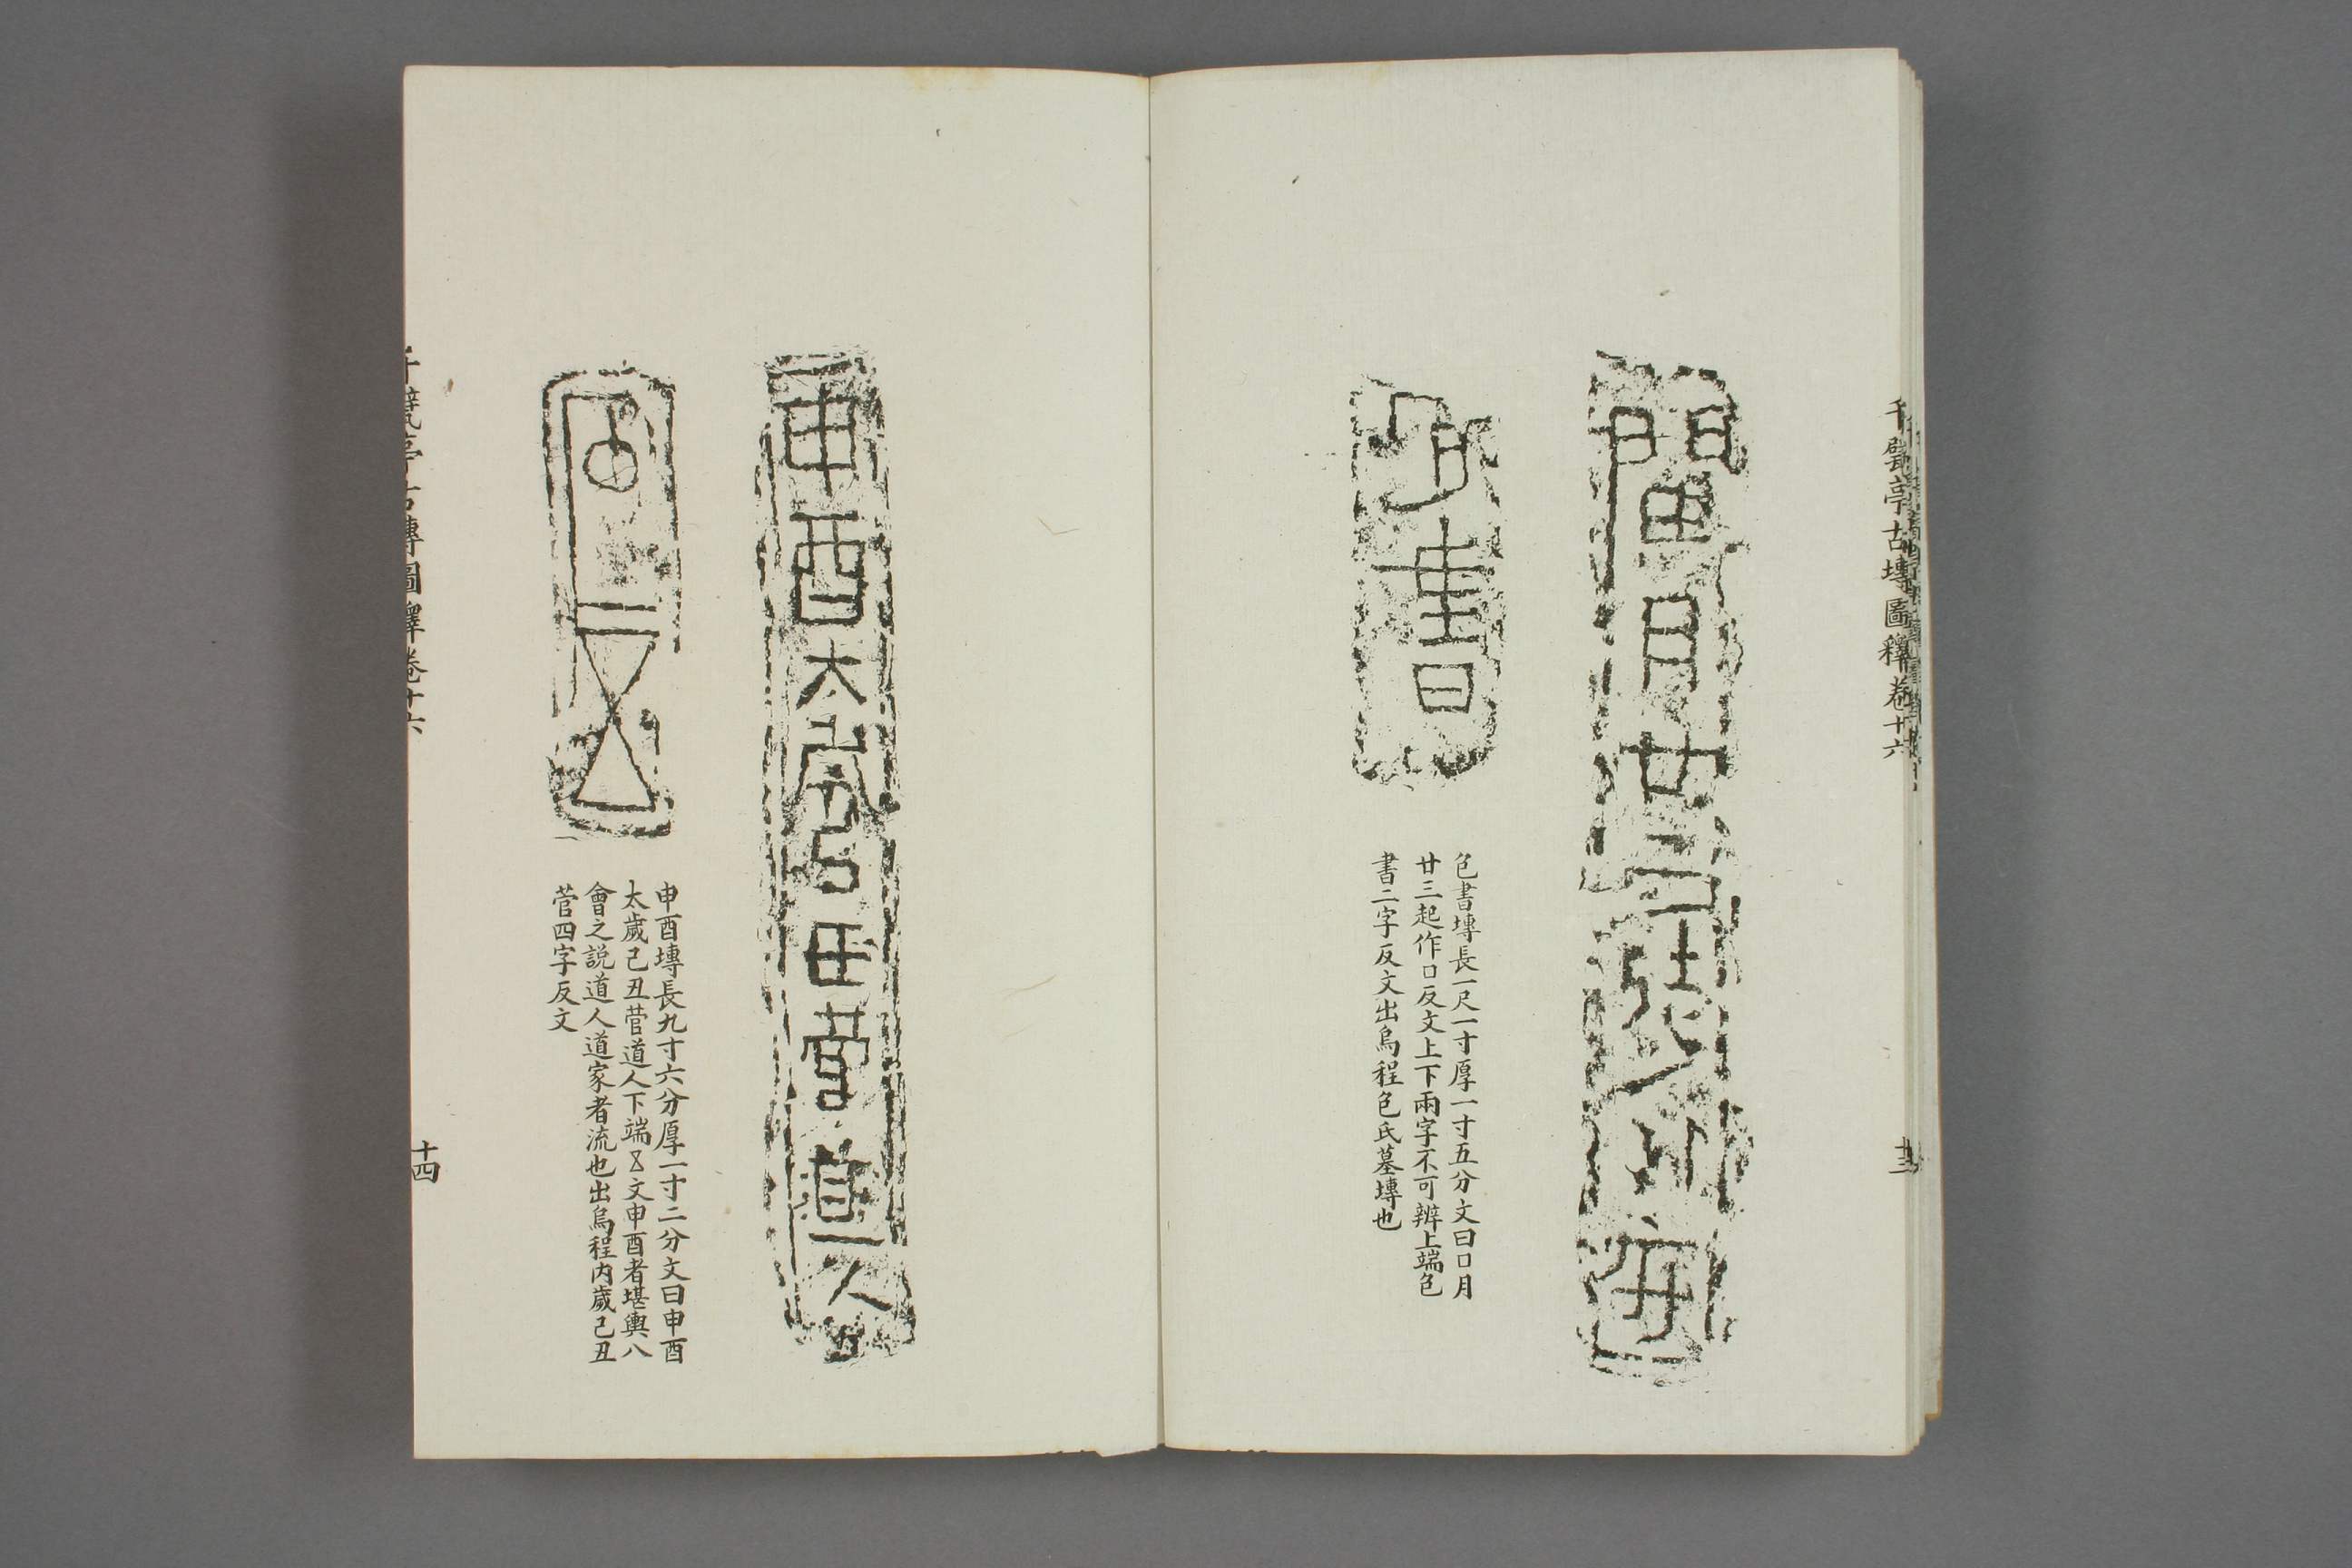 千甓亭古塼圖釋卷十六
十三
色書塼長一尺一寸厚一寸五分文曰口月
廿三起作口反文上下兩字不可辨上端色
書二字反文出烏程色氏墓塼也
申酉太歲己丑菅道人
申酉塼長九寸六分厚一寸二分文曰申酉
太歲己丑菅道人下端㐅文申酉者堪輿八
會之説道人道家者流也出烏程内歲己丑
菅四字反文
千甓亭古塼圖釋卷十六
十四